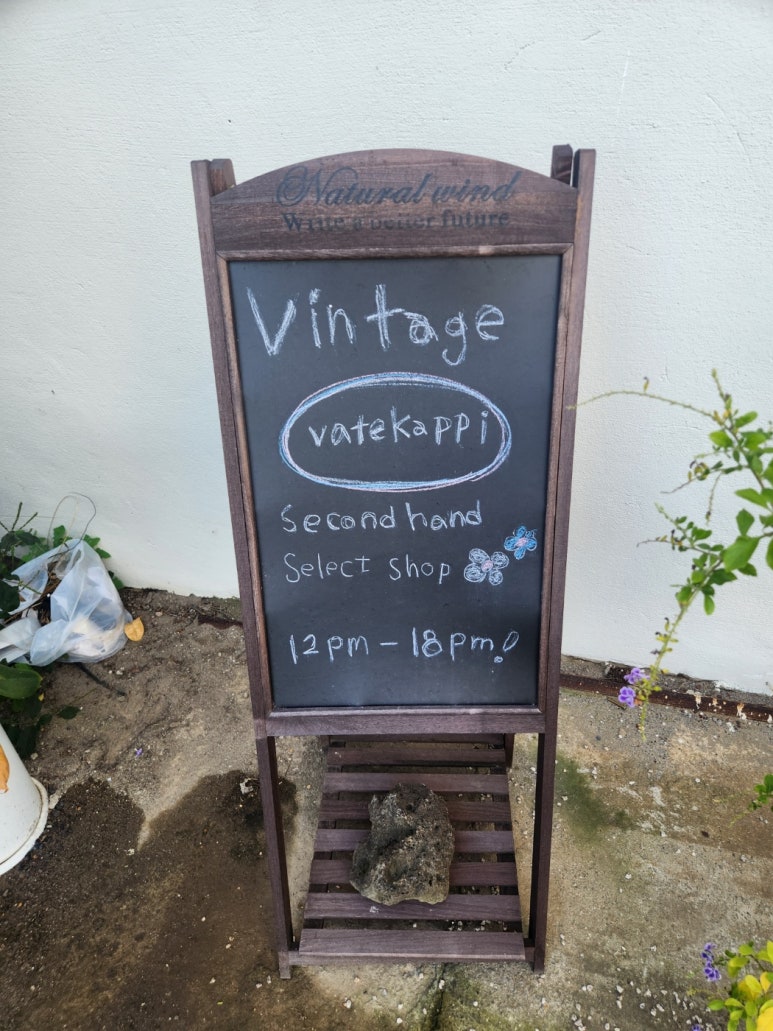 Natural wind
Write a better future
Vintage
vatekappi
Second hand
Select shop
12pm - 18pm!